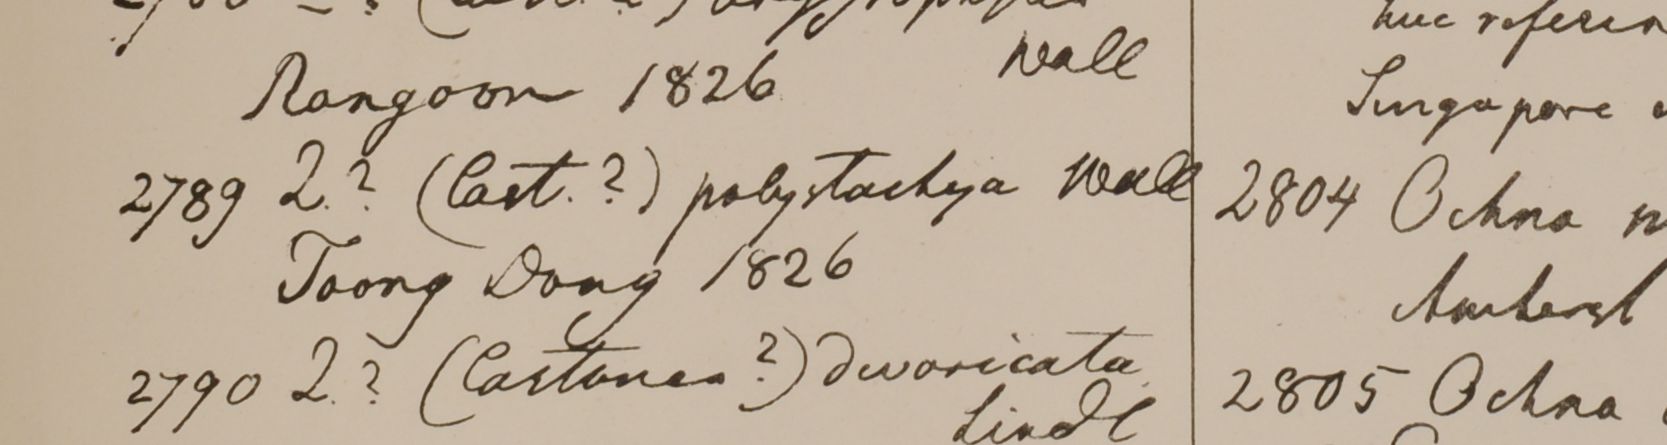 Wall
Rangoon 1826
2789 Q.? (Cast.?) polystachya Wall
Toong Dong 1826
2790 Q.? (Castanea?) divaricata
Lindl
huc referen
Singapore
2804 Ochna
Amherst
2805 Ochna